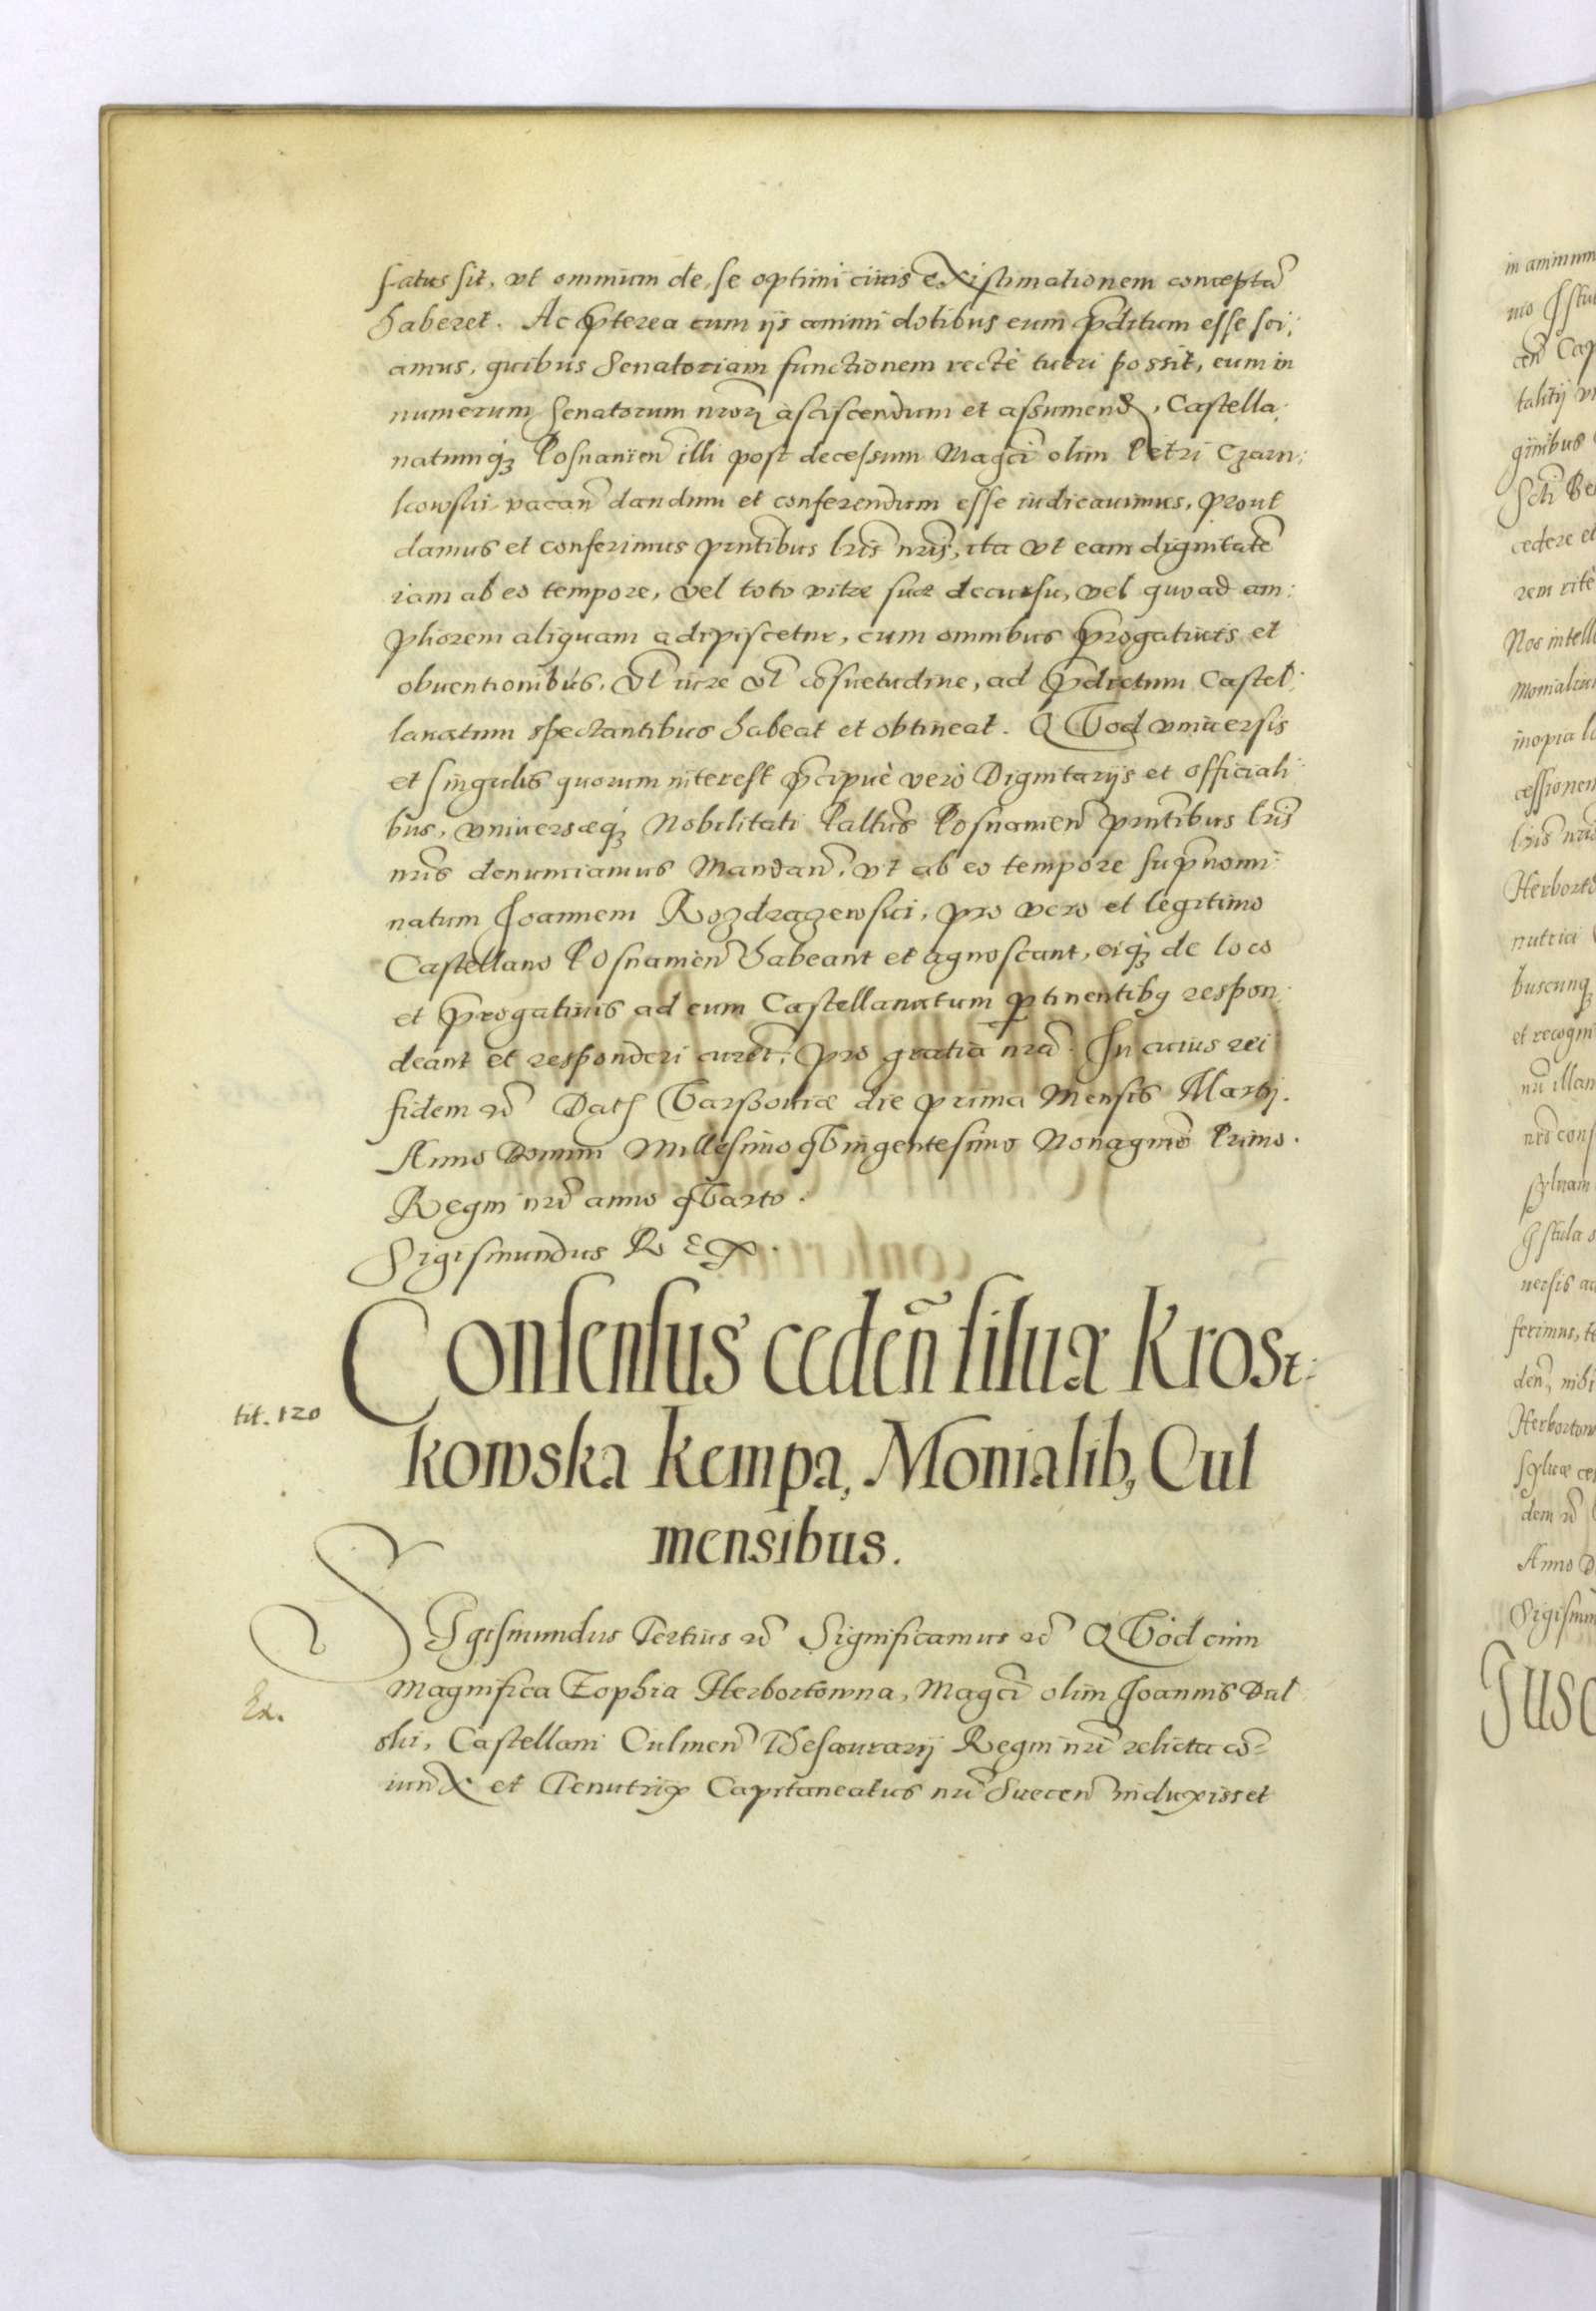 status sit, vt omnium de se optimi ciuis existimationem conceptã
haberet. Ac pterea cum ijs animi dotibus eum pditum esse sci:
amus, quibus Senatoriam functionem rectè tueri possit, eum in
numerum Senatorum nror asciscendum et assumend, Castella:
natumq Posnanien illi post decessum Magci olim Petri Czarn:
kowski vacan dandum et conferendum esse iudicauimus, prout
damus et conferimus pntibus lris nris, ita vt eam dignitatẽ
iam ab eo tempore, vel toto vitæ suæ decursu, vel quoad am:
pliorem aliquam adipiscetur, cum omnibus progatiuis et
obuentionibus, vl iure vl cosuetudine, ad pdictum Castel:
lanatum spectantibus habeat et obtineat. QVod vniuersis
et singulis quorum interest pcipuè verò Dignitarijs et officiali
bus, vniuersæq Nobilitati Paltus Posnanien pntibus lris
nris denunciamus Mandan, vt ab eo tempore supnomi:
natum Joannem Rozdrazewski, pro vero et legitimo
Castellano Posnanien habeant et agnoscant, eiq de loco
et progatiuis ad eum Castellanatum ptinentibq respon:
deant et responderi curẽt, pro gratia nra. In cuius rei
fidem etc Dat Varssouiæ die prima Mensis Martij.
Anno Domini Millesimo qVingentesimo Nonagmo Primo.
Regni nri anno qVarto.
Sigismundus REX.
Consensus ceden̄ siluæ Krost:
tit. 120
kowska Kempa, Monialib, Cul
mensibus.
SIgismundus Tertius etc Significamus etc QVod cum
Magnifica Zophia Herbortowna, Magci olim Joannis Dul
Ex.
ski, Castellani Culmen Thesaurarij Regni nri relicta cõ=
iunx et Tenutrix Capitaneatus nri Suecen induxisset
in animum
Nos intell
inopia
cessionem
Herborto
et recogn
ferimus, te
Anno D